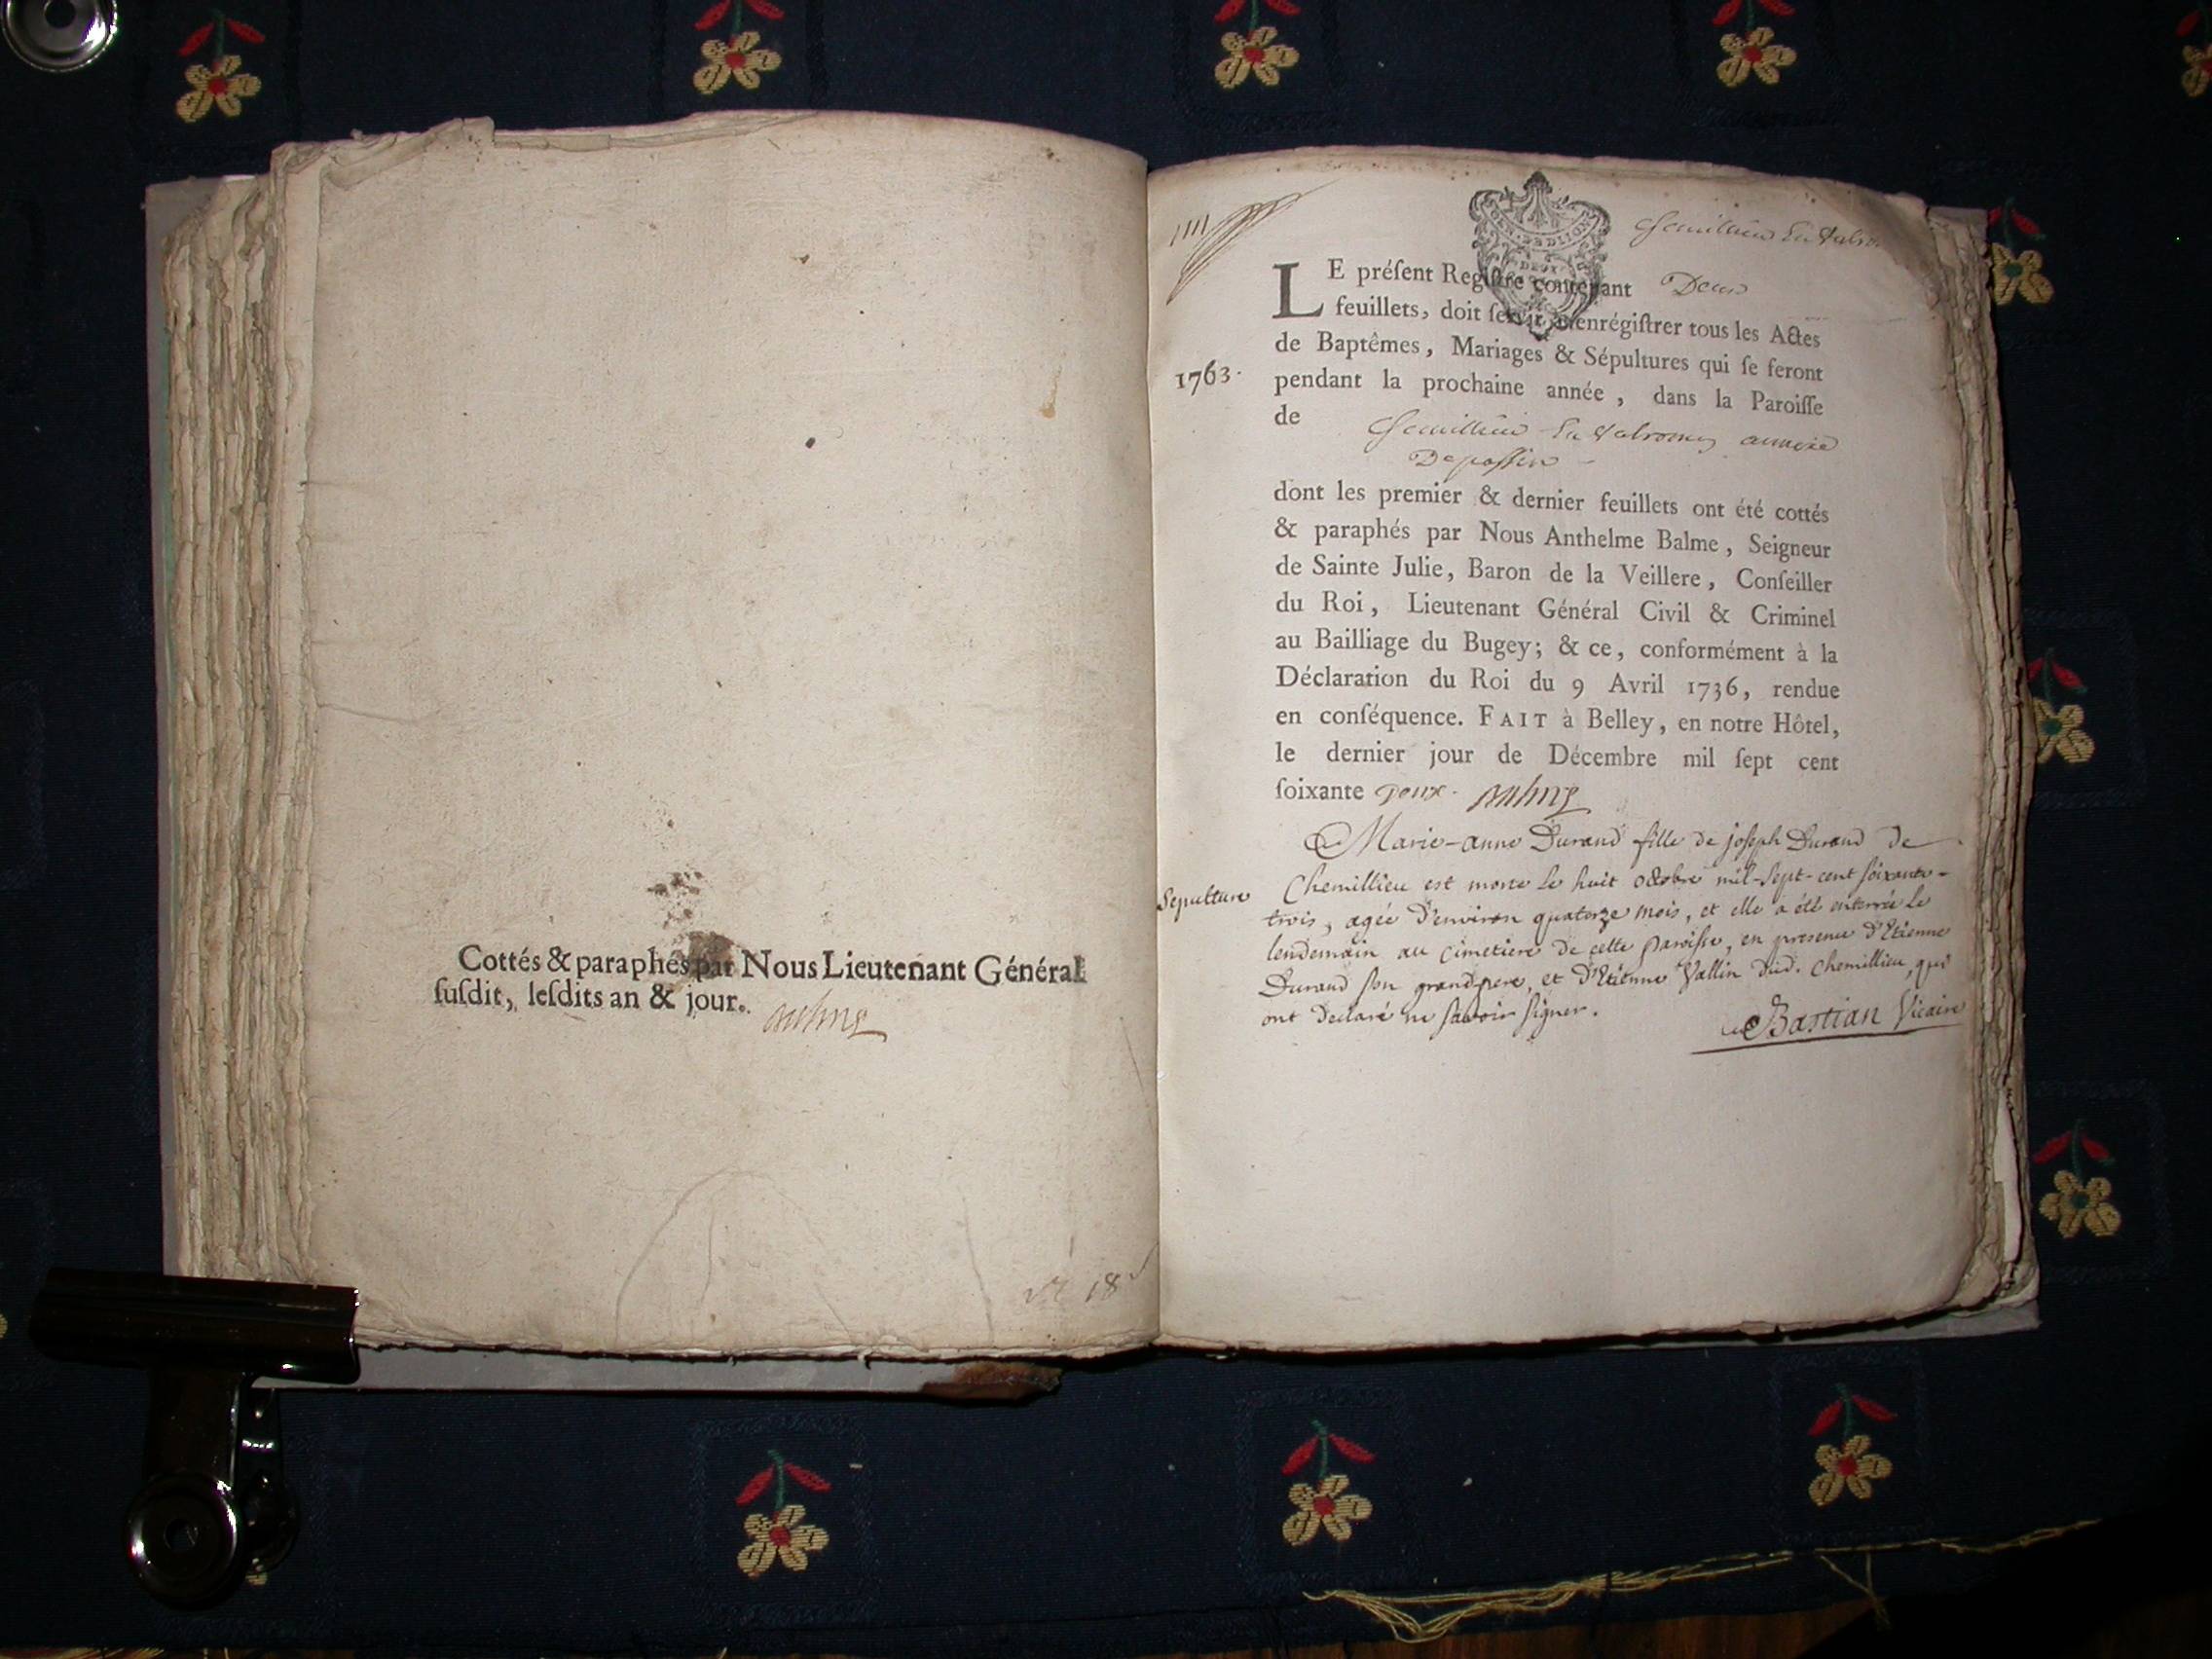 Cottés & paraphés par Nous Lieutenant Général
ſuſdit, leſdits an & jour.
18
Chemillieu En Valromey
LE préſent Regiſtre contenant Deux
feuillets, doit ſervir à enrégiſtrer tous les Actes
de Baptêmes, Mariages & Sépultures qui ſe feront
1763.
pendant la prochaine année, dans la Paroiſſe
de Chemillieu En Valromey annexe
De paſſin
dont les premier & dernier feuillets ont été cottés
& paraphés par Nous Anthelme Balme, Seigneur
de Sainte Julie, Baron de la Veillere, Conſeiller
du Roi, Lieutenant Général Civil & Criminel
au Bailliage du Bugey; & ce, conformément à la
Déclaration du Roi du 9 Avril 1736, rendue
en conſéquence. FAIT à Belley, en notre Hôtel,
le dernier jour de Décembre mil ſept cent
ſoixante Deux.
Marie-anne Durand fille de joſeph Durand de
Sepulture
Chemillieu est morte le huit octobre mil-ſept-cent ſoixante-
trois, agée d'environ quatorze mois, et elle a été enterrée le
lendemain au cimetiere de cette paroiſſe, en presence d'Etienne
Durand ſon grandpere, et d'Etienne Vallin dud. Chemillieu, qui
ont declaré ne ſavoir ſigner.
Bastian Vicaire